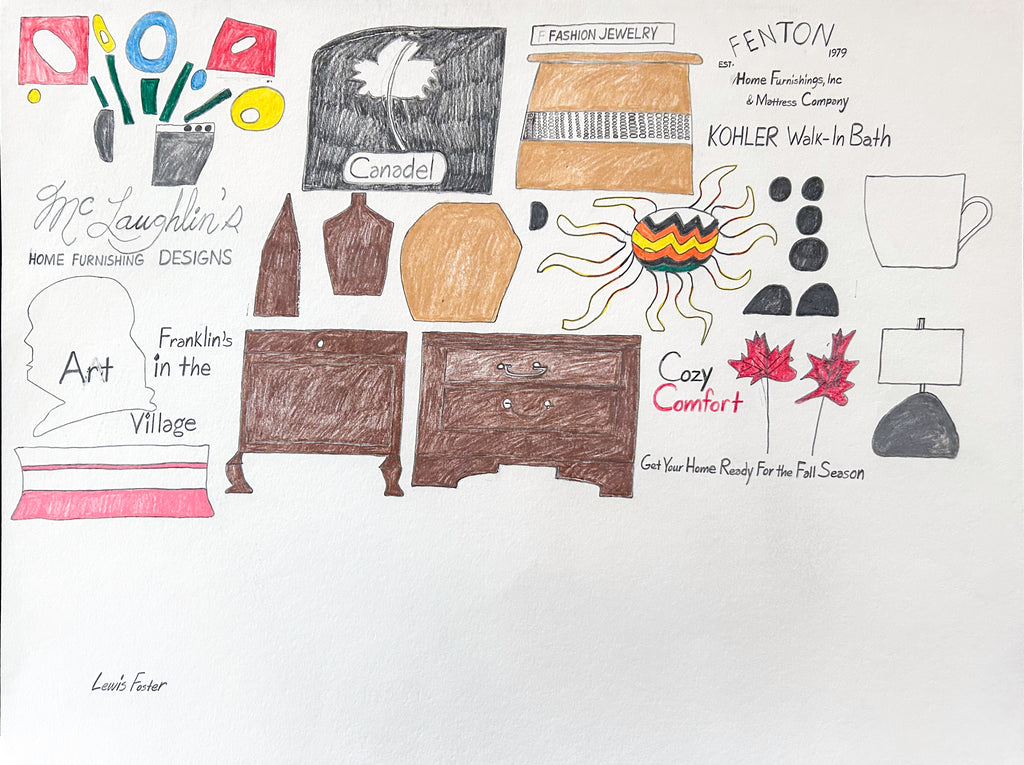 Canadel
FASHION JEWELRY
FENTON
EST. 1979
Home Furnishings, Inc
& Mattress Company
KOHLER Walk-In Bath
McLaughlin's
HOME FURNISHING DESIGNS
Art
Franklin's
in the
Village
Cozy
Comfort
Get Your Home Ready For the Fall Season
Lewis Foster